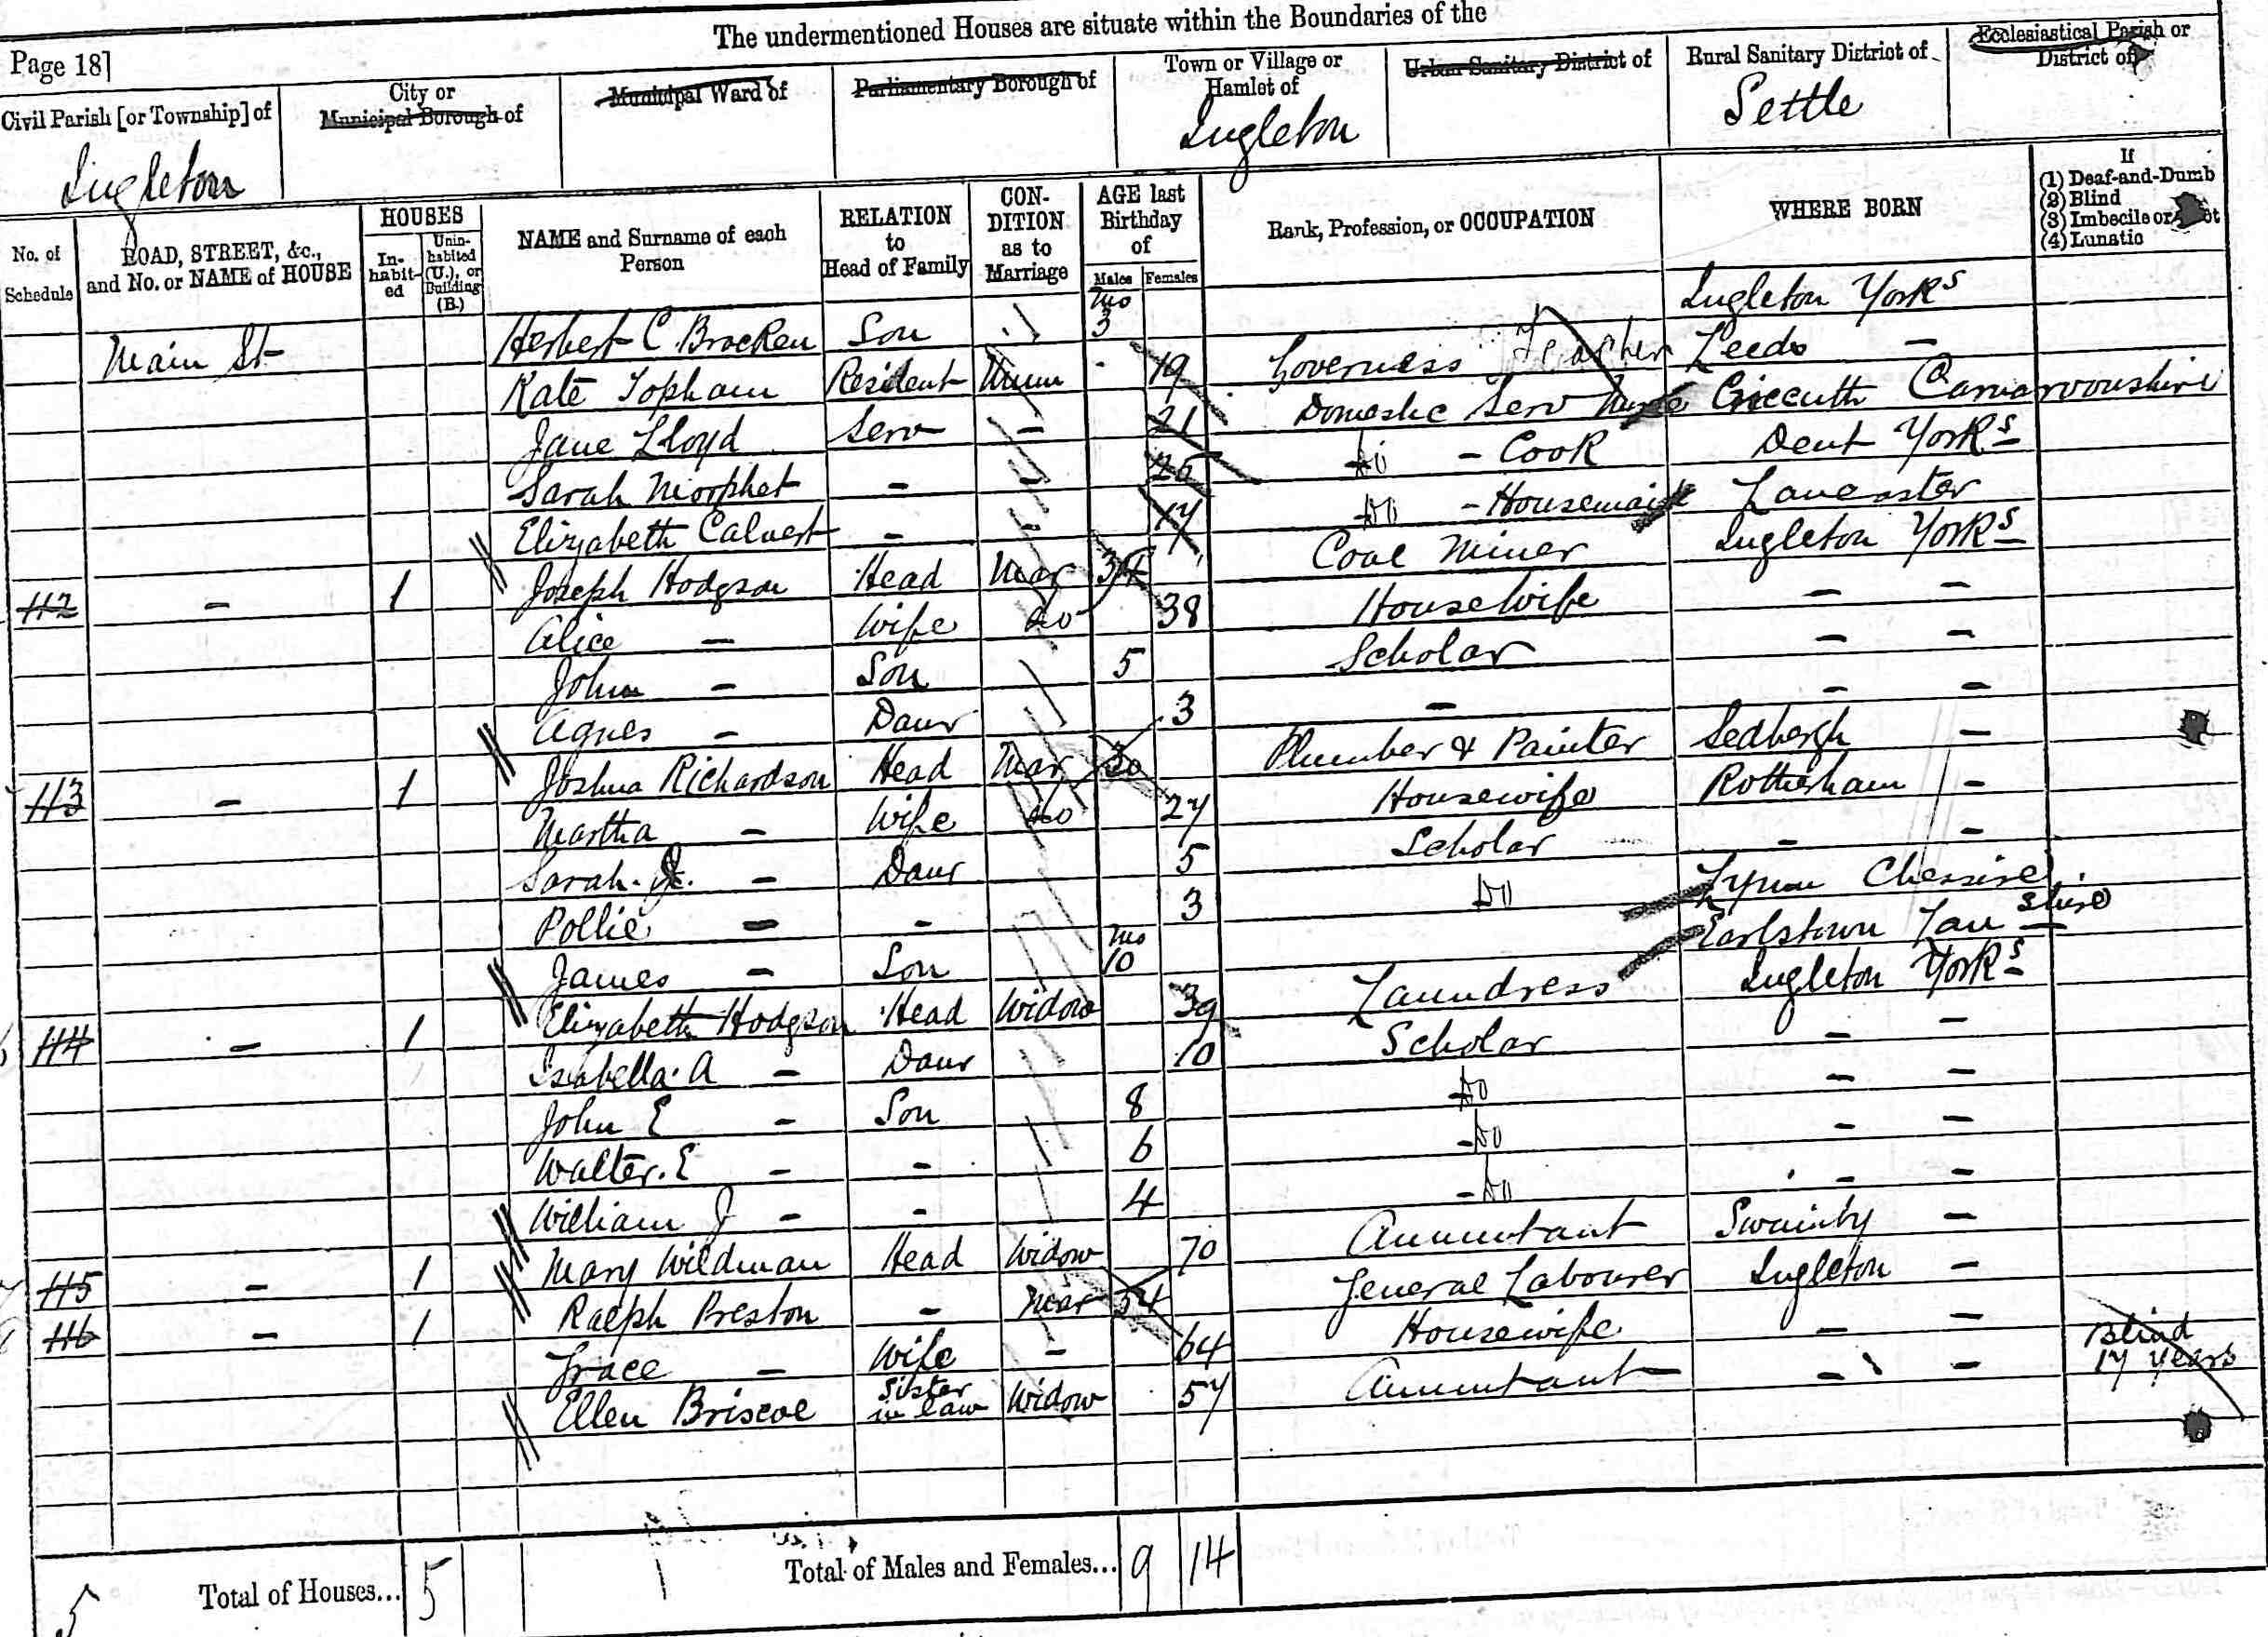 The undermentioned Houses are situate within the Boundaries of the
Page 18]
Civil Parish [or Township] of
Ingleton
City or Municipal Borough of
Municipal Ward of
Parliamentary Borough of
Town or Village or Hamlet of
Ingleton
Urban Sanitary District of
Rural Sanitary District of
Settle
Ecclesiastical Parish or District of
No. of Schedule
ROAD, STREET, &c., and No. or NAME of HOUSE
HOUSES
Inhabited
Uninhabited (U.), or Building (B.)
NAME and Surname of each Person
RELATION to Head of Family
CONDITION as to Marriage
AGE last Birthday of
Males Females
Rank, Profession, or OCCUPATION
WHERE BORN
If
(1) Deaf-and-Dumb
(2) Blind
(3) Imbecile or
(4) Lunatic
Main St Herbert C. Bracken Son 3 mo Ingleton Yorks
Kate Topham Resident Unm 19 Governess Teacher Leeds -
Jane Lloyd Serv - 21 Domestic Serv Nurse Criccuth Carnarvonshire
Sarah Morphet - - 26 Do - Cook Dent Yorks
Elizabeth Calvert - 17 Do - Housemaid Lancaster
112 - 1 Joseph Hodgson Head Mar 34 Coal Miner Ingleton Yorks
Alice - Wife do 38 Housewife - -
John - Son 5 Scholar - -
Agnes - Daur 3 - - -
113 - 1 Joshua Richardson Head Mar 30 Plumber & Painter Sedbergh -
Martha - Wife do 27 Housewife Rotherham -
Sarah. - Daur 5 Scholar - -
Pollie - - 3 Do Lymm Chessire
James - Son 10 mo Earlstown Lanshire
114 - 1 Elizabeth Hodgson Head Widow 39 Laundress Ingleton Yorks
Isabella. A - Daur 10 Scholar - -
John E - Son 8 Do - -
Walter. E - - 6 Do - -
William J - - 4 Do - -
115 - 1 Mary Wildman Head Widow 70 Annuitant Swainby -
116 - 1 Ralph Preston - Mar 54 General Labourer Ingleton -
Grace - Wife - 64 Housewife - - Blind 17 years
Ellen Briscoe Sister in law Widow 57 Annuitant - -
5 Total of Houses... 5 Total of Males and Females... 9 14